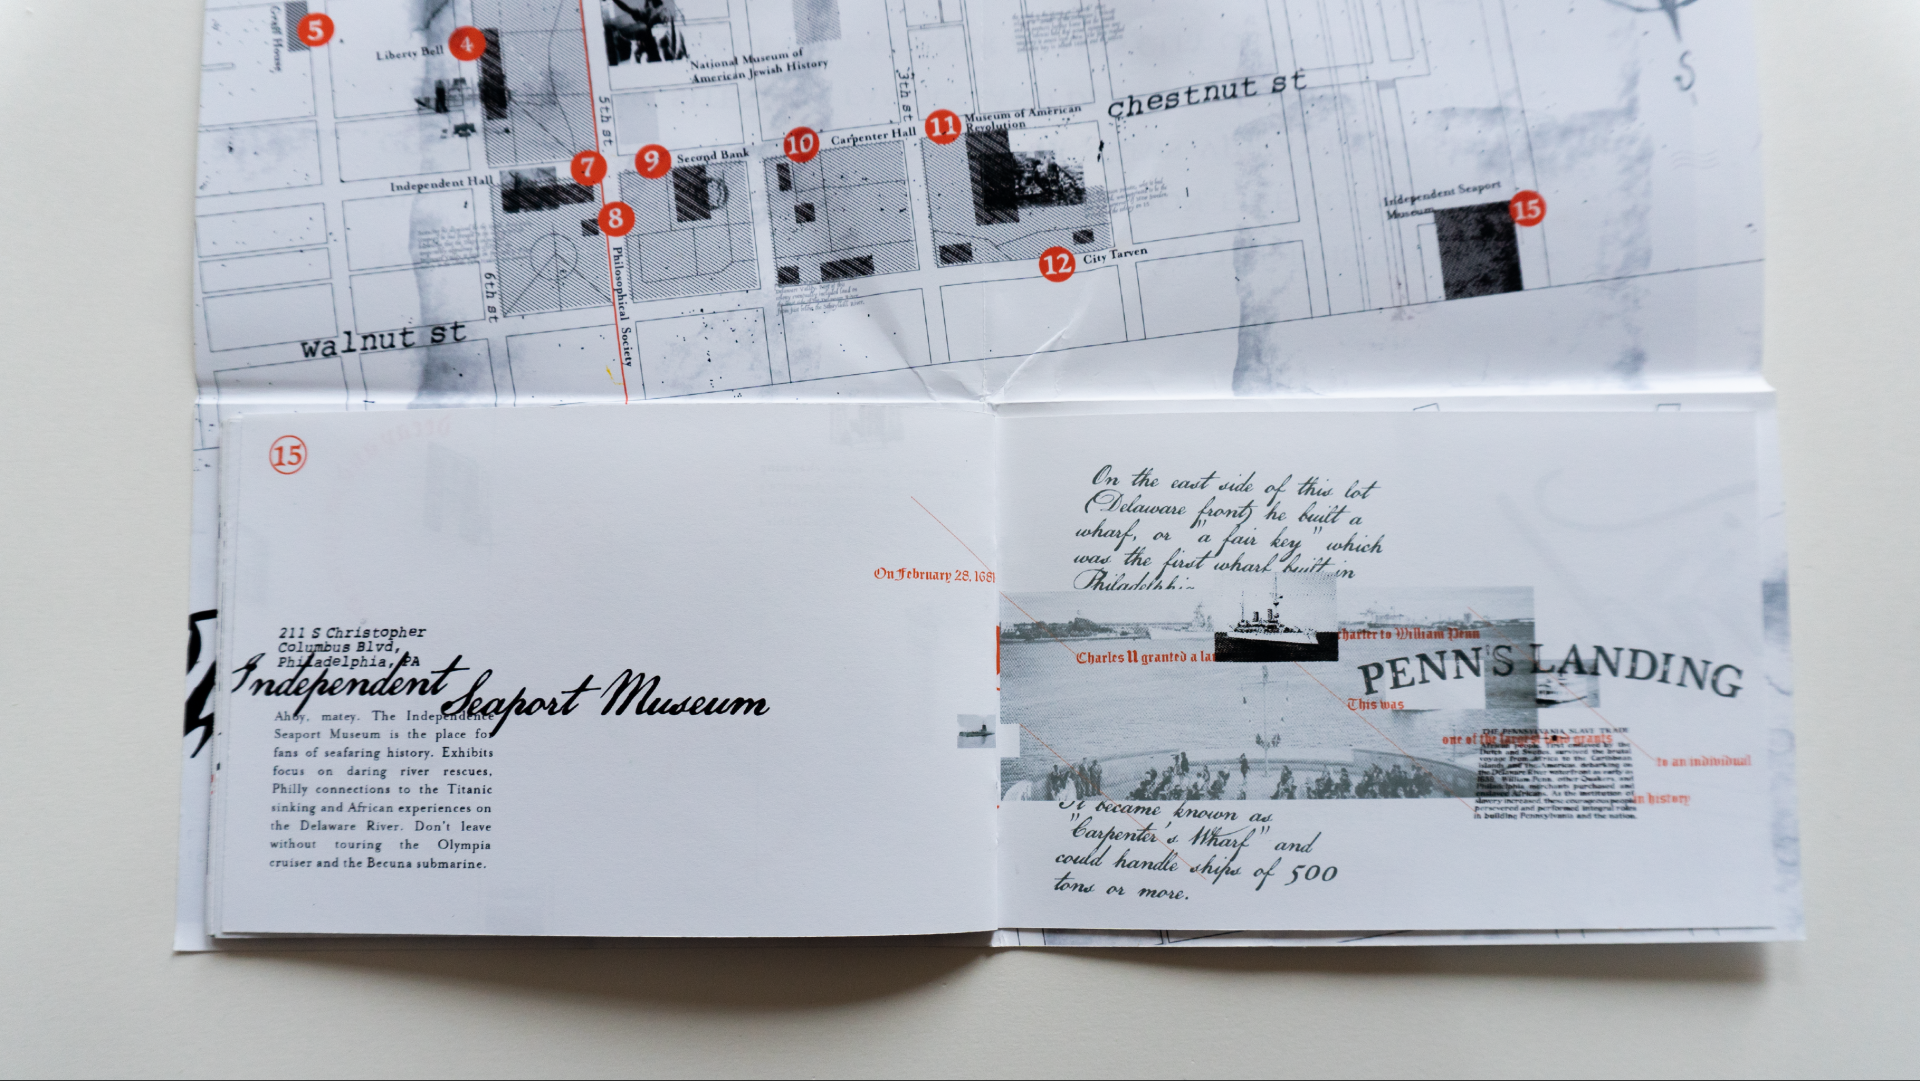 5
Liberty Bell
4
National Museum of
American Jewish History
5th st.
3th st
chestnut st
S
11
Museum of American
Revolution
10
Carpenter Hall
9
Second Bank
7
Independent Hall
8
Independent Seaport
Museum
15
12
City Tarven
Philosophical Society
6th st
walnut st
15
211 S Christopher
Columbus Blvd,
Philadelphia, PA
Independent Seaport Museum
Ahoy, matey. The Independence
Seaport Museum is the place for
fans of seafaring history. Exhibits
focus on daring river rescues,
Philly connections to the Titanic
sinking and African experiences on
the Delaware River. Don't leave
without touring the Olympia
cruiser and the Becuna submarine.
On February 28, 1681
On the east side of this lot
(Delaware front) he built a
wharf, or "a fair key" which
was the first wharf built in
charter to William Penn
Charles II granted a
PENN'S LANDING
This was
one of the largest land grants
to an individual
in history
THE PENNSYLVANIA SLAVE TRADE
voyage from Africa to the Caribbean
slavery increased, these courageous people
persevered and performed integral roles
in building Pennsylvania and the nation.
It became known as
"Carpenter's Wharf" and
could handle ships of 500
tons or more.